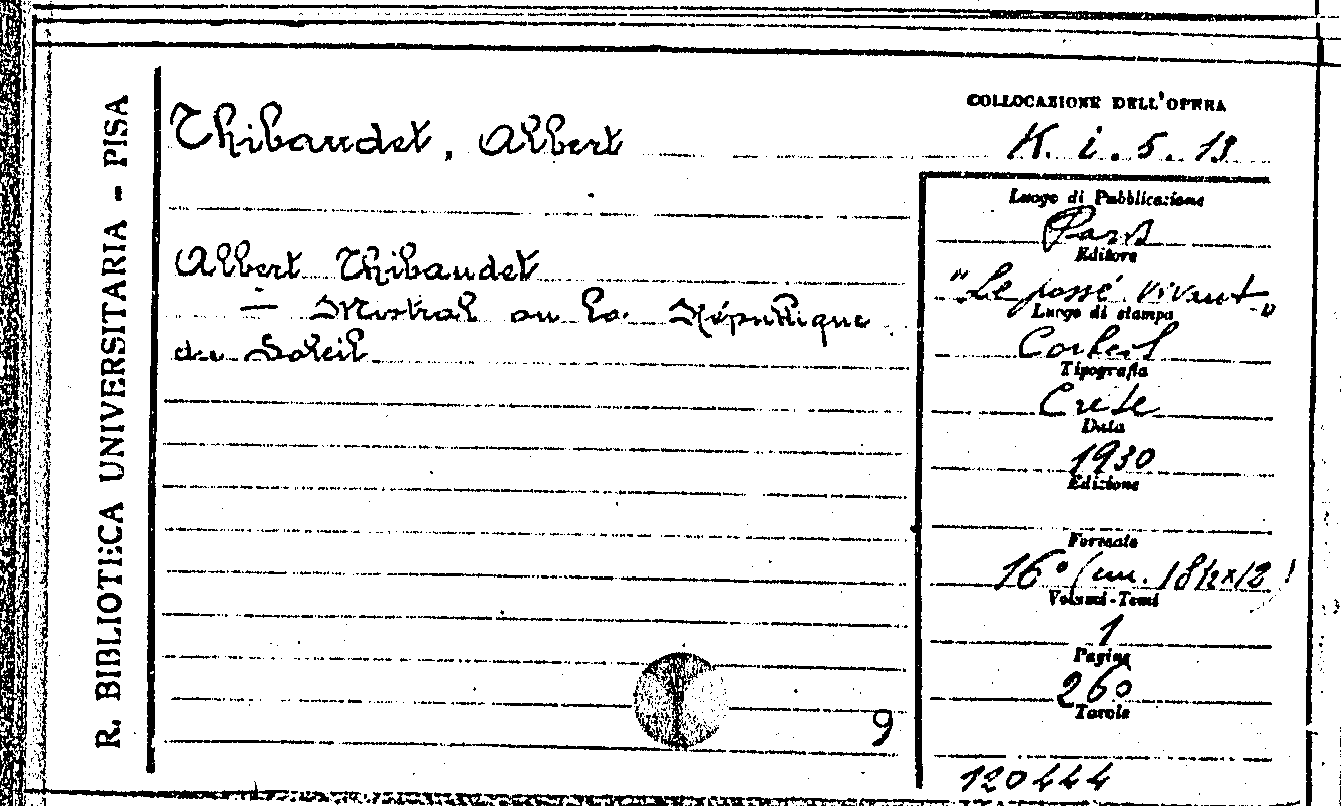 R. BIBLIOTECA UNIVERSITARIA - PISA
Thibaudet, Albert
Albert Thibaudet
— Mistral ou la République
du Soleil
9
COLLOCAZIONE DELL'OPERA
K. i. 5. 13
Luogo di Pubblicazione
Paris
Editore
"Le passé vivant"
Luogo di stampa
Corbeil
Tipografia
Crété
Data
1930
Edizione
Formato
16° (cm. 18½x12)
Volumi-Tomi
1
Pagine
260
Tavole
120444